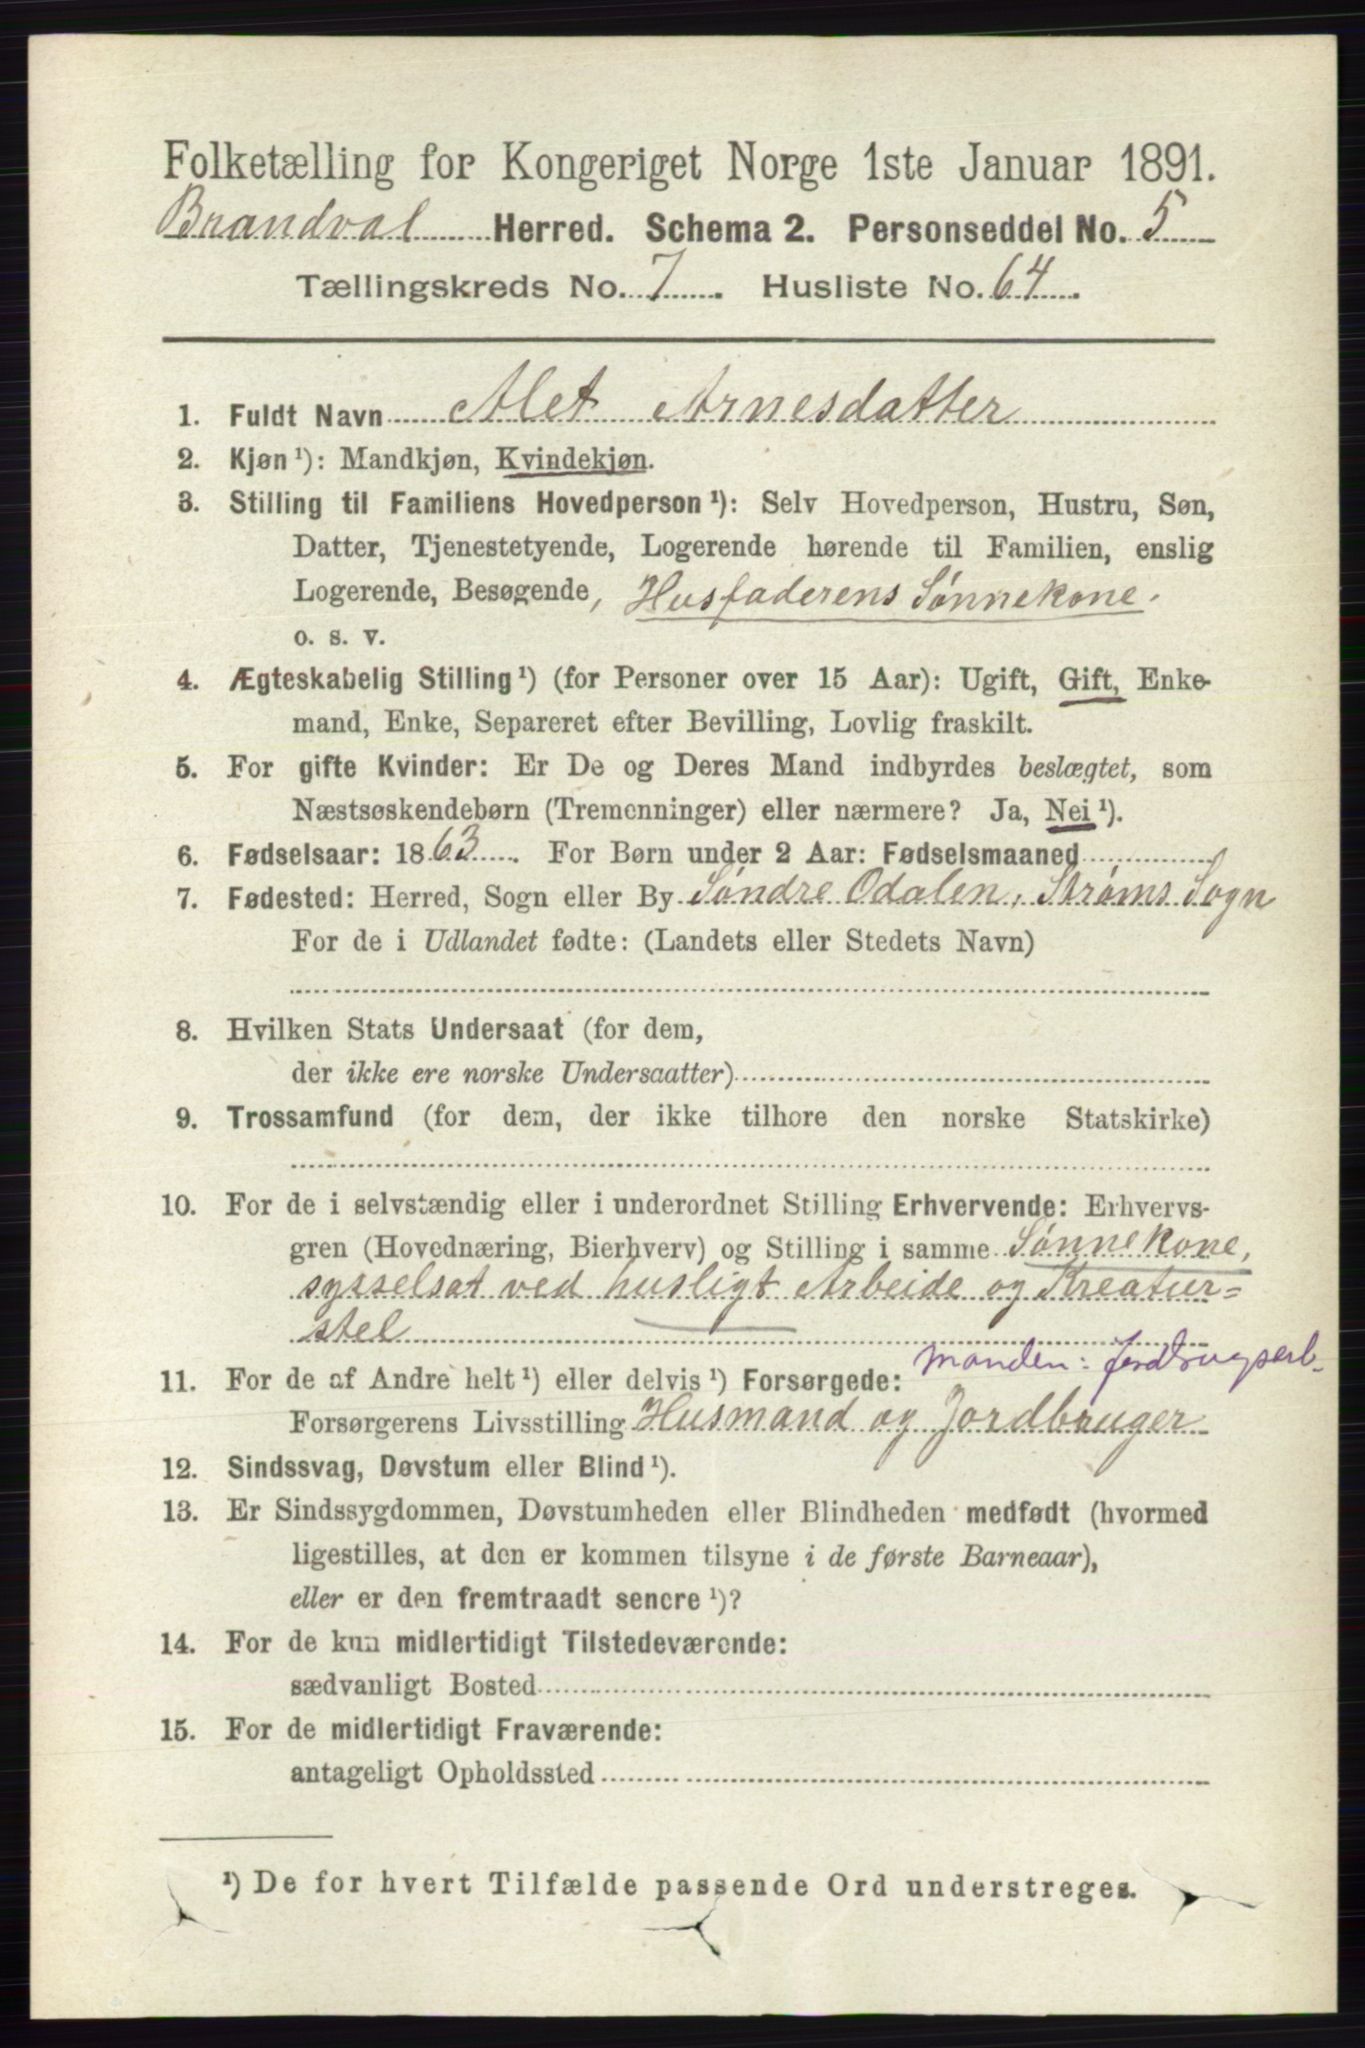 Folketælling for Kongeriget Norge 1ste Januar 1891.
Brandval Herred. Schema 2. Personseddel No. 5
Tællingskreds No. 7. Husliste No. 64.
1. Fuldt Navn Alet Arnesdatter
2. Kjøn¹): Mandkjøn, Kvindekjøn.
3. Stilling til Familiens Hovedperson¹): Selv Hovedperson, Hustru, Søn,
Datter, Tjenestetyende, Logerende hørende til Familien, enslig
Logerende, Besøgende, Husfaderens Sønnekone.
o. s. v.
4. Ægteskabelig Stilling¹) (for Personer over 15 Aar): Ugift, Gift, Enke-
mand, Enke, Separeret efter Bevilling, Lovlig fraskilt.
5. For gifte Kvinder: Er De og Deres Mand indbyrdes beslægtet, som
Næstsøskendebørn (Tremenninger) eller nærmere? Ja, Nei¹).
6. Fødselsaar: 1863. For Børn under 2 Aar: Fødselsmaaned
7. Fødested: Herred, Sogn eller By Søndre Odalen, Strøms Sogn
For de i Udlandet fødte: (Landets eller Stedets Navn)
8. Hvilken Stats Undersaat (for dem,
der ikke ere norske Undersaatter)
9. Trossamfund (for dem, der ikke tilhore den norske Statskirke)
10. For de i selvstændig eller i underordnet Stilling Erhvervende: Erhvervs-
gren (Hovednæring, Bierhverv) og Stilling i samme Sønnekone,
sysselsat ved husligt Arbeide og Kreatur=
stel
Manden: jordbrugsarb.
11. For de af Andre helt¹) eller delvis¹) Forsørgede:
Forsørgerens Livsstilling Husmand og Jordbruger
12. Sindssvag, Døvstum eller Blind¹).
13. Er Sindssygdommen, Døvstumheden eller Blindheden medfødt (hvormed
ligestilles, at den er kommen tilsyne i de første Barneaar),
eller er den fremtraadt senere¹)?
14. For de kun midlertidigt Tilstedeværende:
sædvanligt Bosted
15. For de midlertidigt Fraværende:
antageligt Opholdssted
¹) De for hvert Tilfælde passende Ord understreges.